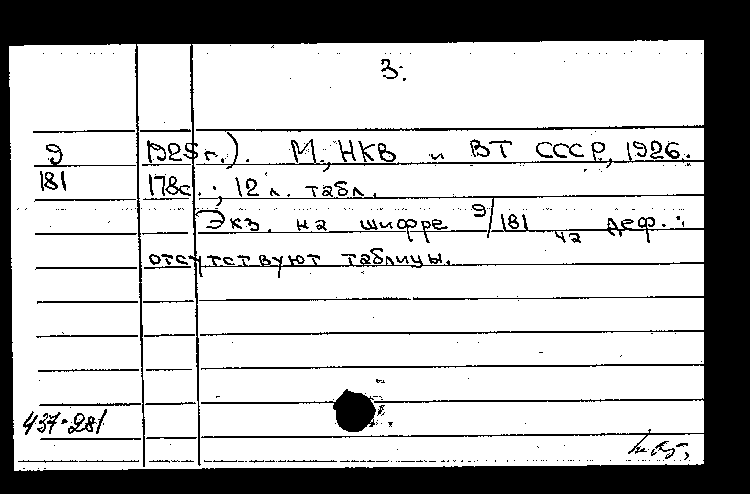 3.
9 1925 г.). М., НКВ и ВТ СССР, 1926.
181 178с.; 12 л. табл.
Экз. на шифре 9/181 деф.:
отсутствуют таблицы.
437-281